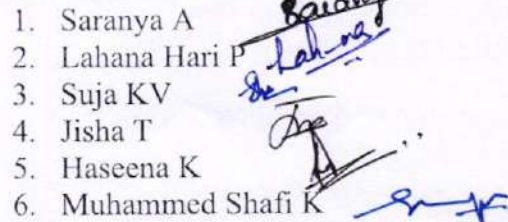 1. Saranya A
2. Lahana Hari P
3. Suja KV
4. Jisha T
5. Haseena K
6. Muhammed Shafi K